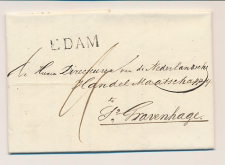 E:DAM
de Heeren Directeuren van de Nederlandsche
Handel Maatschappy
te
S'Gravenhage.